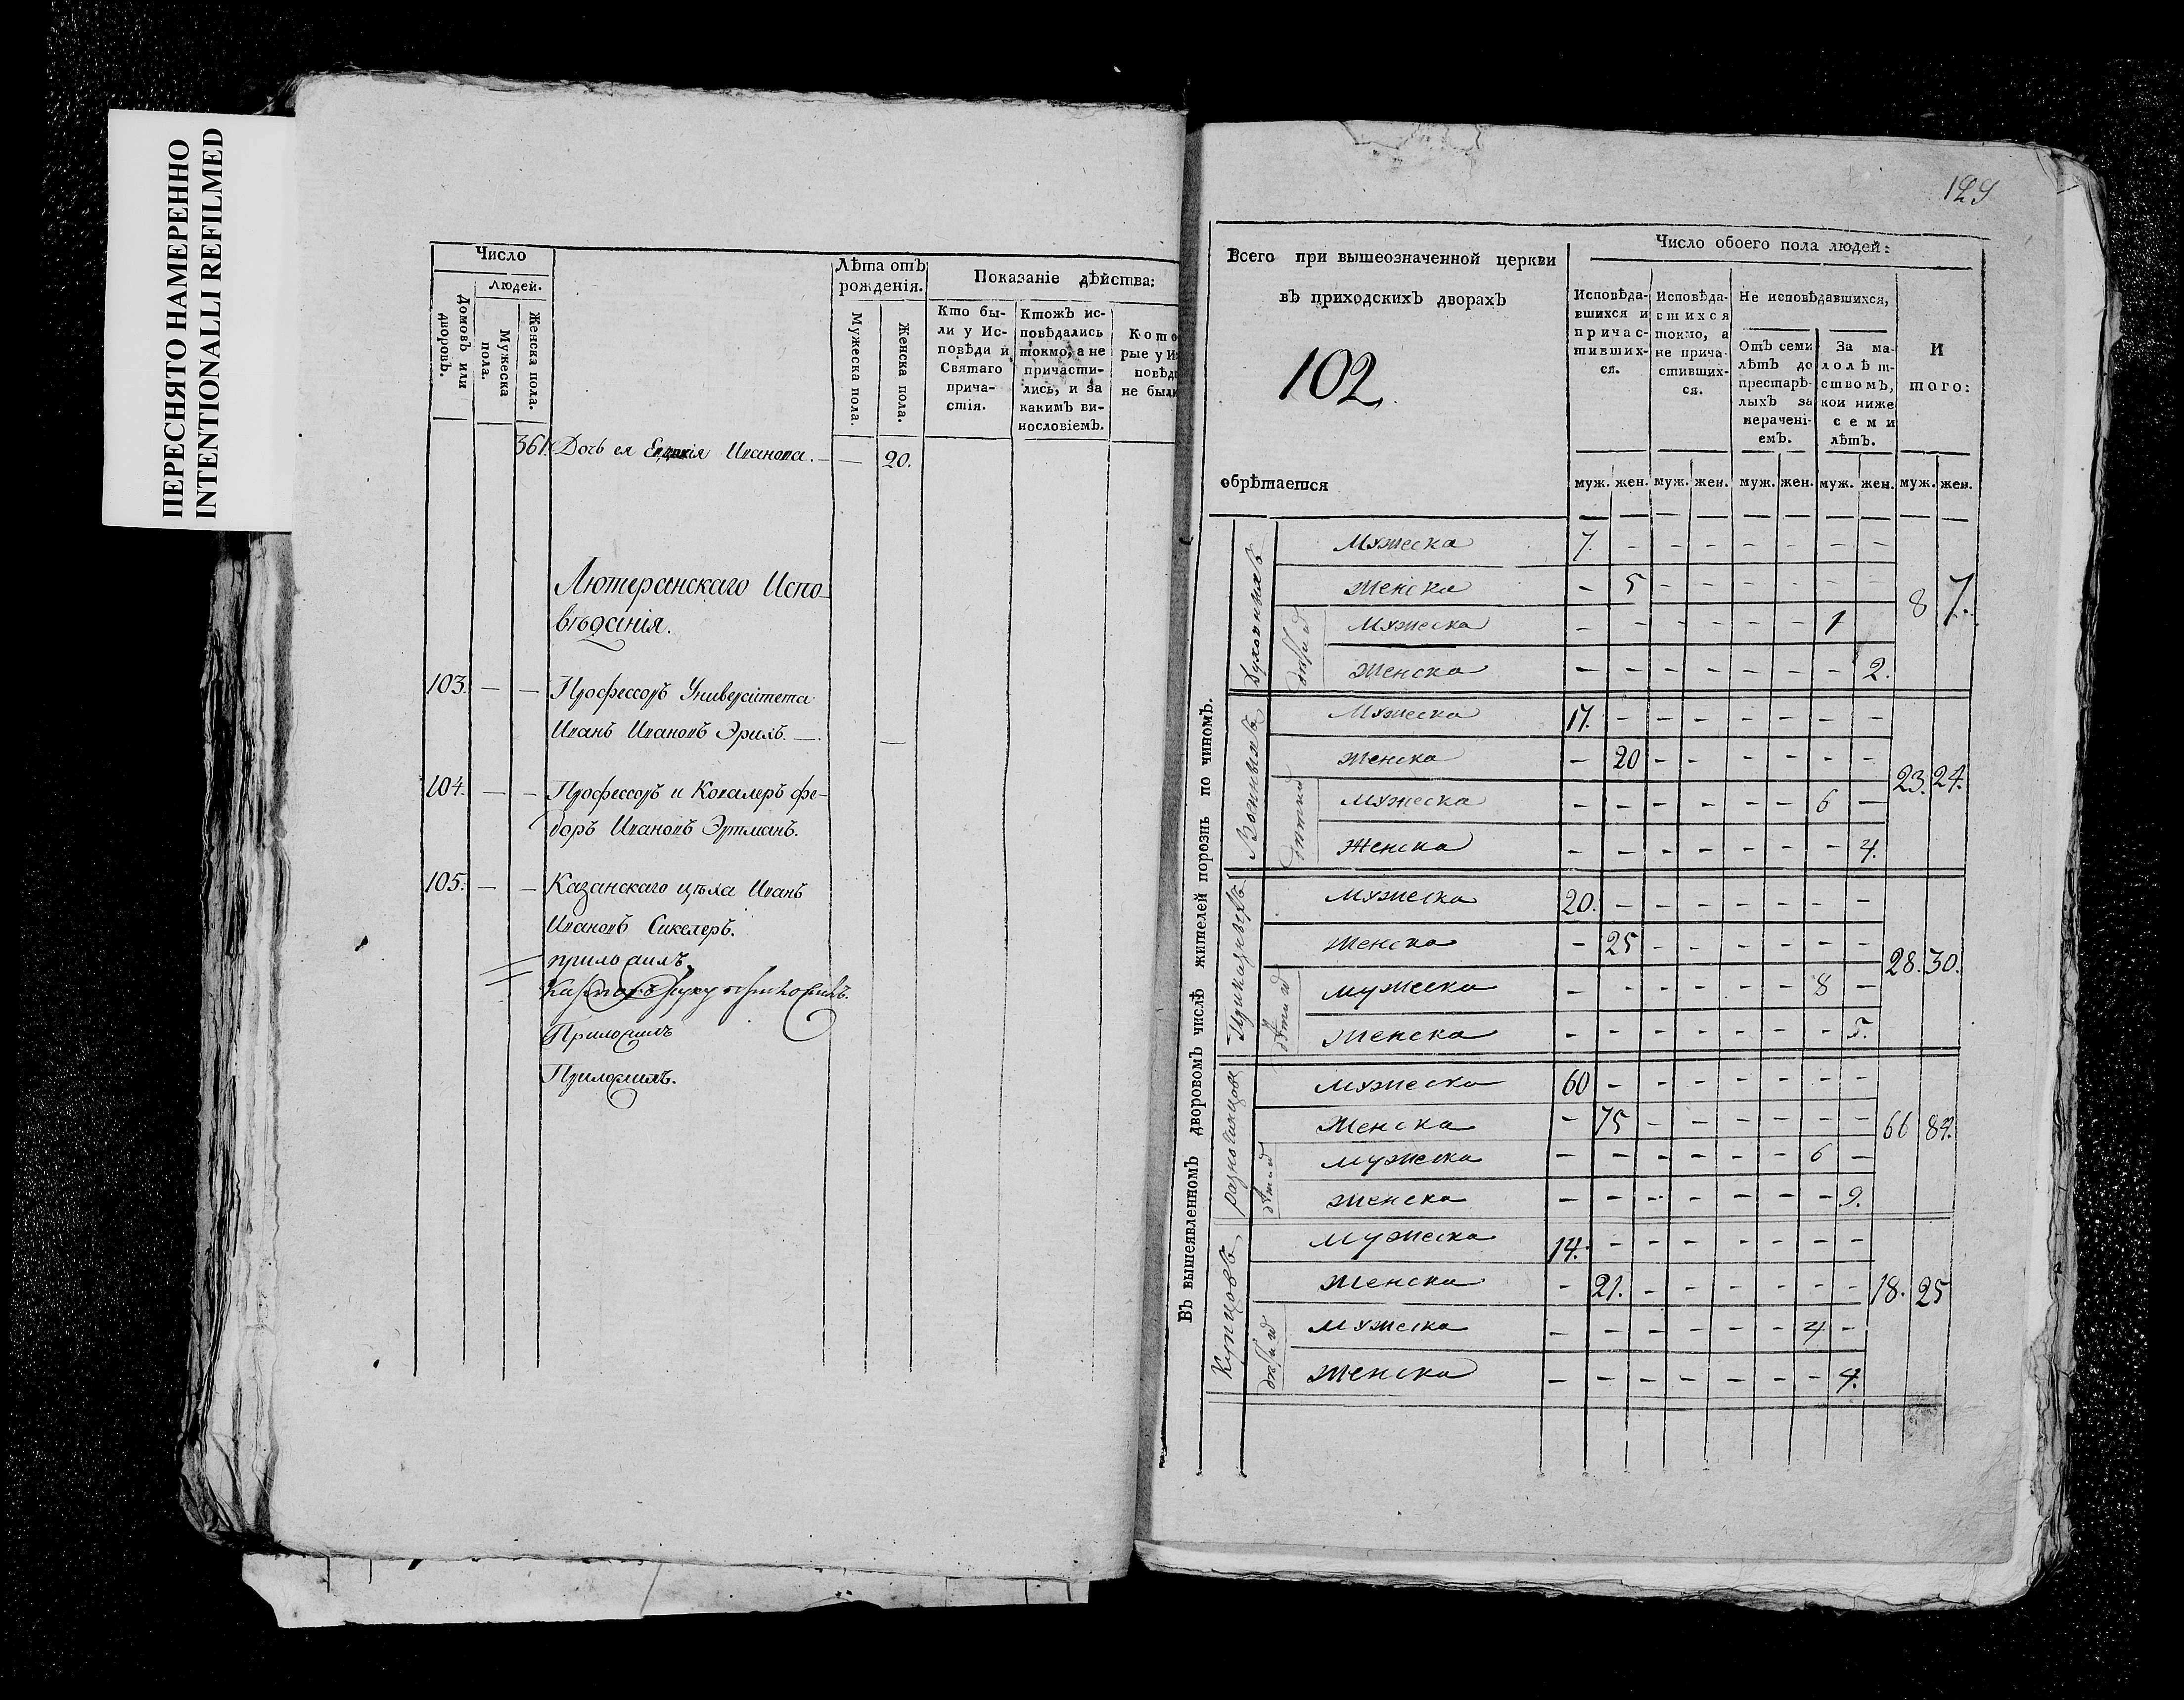 ПЕРЕСНЯТО НАМЕРЕННО
INTENTIONALLI REFILMED
Число
людей.
Домовъ или дворовъ.
Мужеска пола.
Женска пола.
Лѣта отъ рожденія.
Мужеска пола.
Женска пола.
Показаніе дѣйства:
Кто были у Исповѣди и Святаго причастія.
Ктожъ исповѣдались токмо, а не причастились, и за какимъ винословіемъ.
Кото
рые у И
повѣд
не был
361. Дочь ея Иванова. — — 20.
Лютеранскаго Испо-
вѣданія.
103. — — Профессоръ Университета
Иванъ Ивановъ —
104. — — Профессоръ и Кавалеръ Фе-
доръ Ивановъ Эртманъ.
105. — — Казанскаго цѣха Иванъ
Ивановъ Сикелеръ.
129
Всего при вышеозначенной церкви
въ приходскихъ дворахъ
102
обрѣтается
Число обоего пола людей:
Исповѣдавшихся и причастившихся.
Исповѣдавшихся токмо, а не причастившихся.
Не исповѣдавшихся,
Отъ семи лѣтъ до престарѣлыхъ за нераченіемъ.
За малолѣтствомъ, кои ниже семи лѣтъ.
И того:
муж. жен. муж. жен. муж. жен. муж. жен. муж. жен.
Въ вышеявленномъ дворовомъ числѣ жителей порознь по чиномъ.
Духовныхъ
Мужеска 7. - - - - - - -
Женска - 5 - - - - - -
дѣтей
Мужеска - - - - - - 1
Женска - - - - - - - 2.
8 7.
Военныхъ
Мужеска 17. - - - - - - -
Женска - 20 - - - - - -
дѣтей
Мужеска - - - - - - 6 -
Женска - - - - - - - 4.
23. 24.
Приказныхъ
Мужеска 20. - - - - - - -
Женска - 25 - - - - - -
дѣтей
Мужеска - - - - - - 8 -
Женска - - - - - - - 5.
28. 30.
разночинцов
Мужеска 60 - - - - - - -
Женска - 75 - - - - - -
дѣтей
Мужеска - - - - - - 6 -
Женска - - - - - - - 9.
66 84.
Купцовъ
Мужеска 14. - - - - - - -
Женска - 21. - - - - - -
дѣтей
Мужеска - - - - - - 4 -
Женска - - - - - - - 4.
18. 25